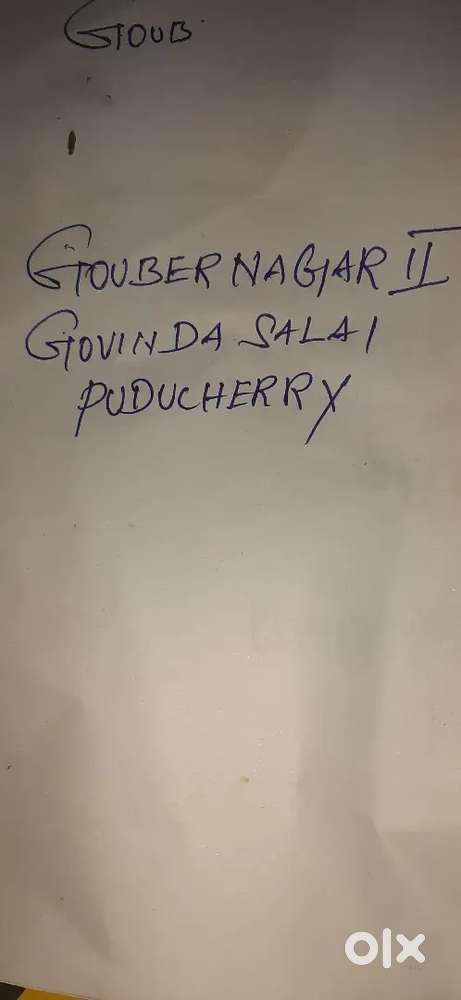 GOUB
GOUBER NAGAR II
GOVINDA SALAI
PUDUCHERRY
olx